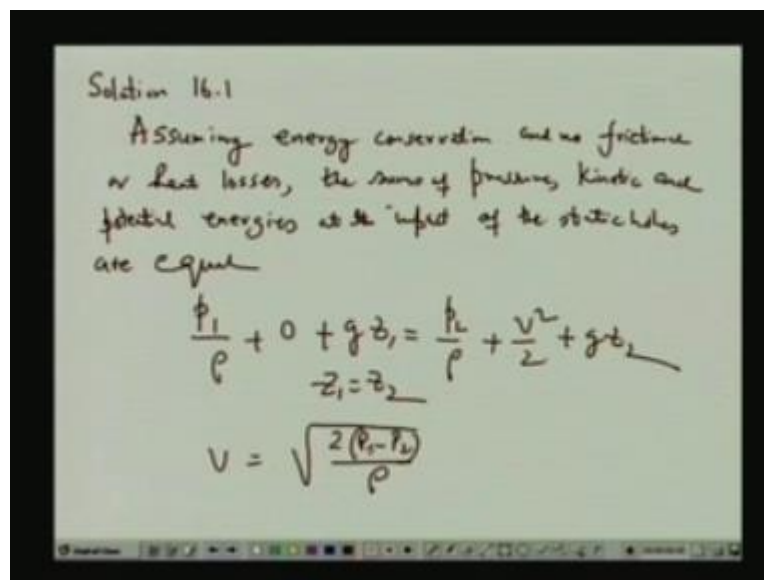 Solution 16.1
Assuming energy conservation and no frictional
or heat losses, the sum of pressure, kinetic and
potential energies at the input of the static holes
are equal
p₁/ρ + 0 + gz₁ = p₂/ρ + v²/2 + gz₂
z₁ = z₂
v = √(2(p₁-p₂)/ρ)